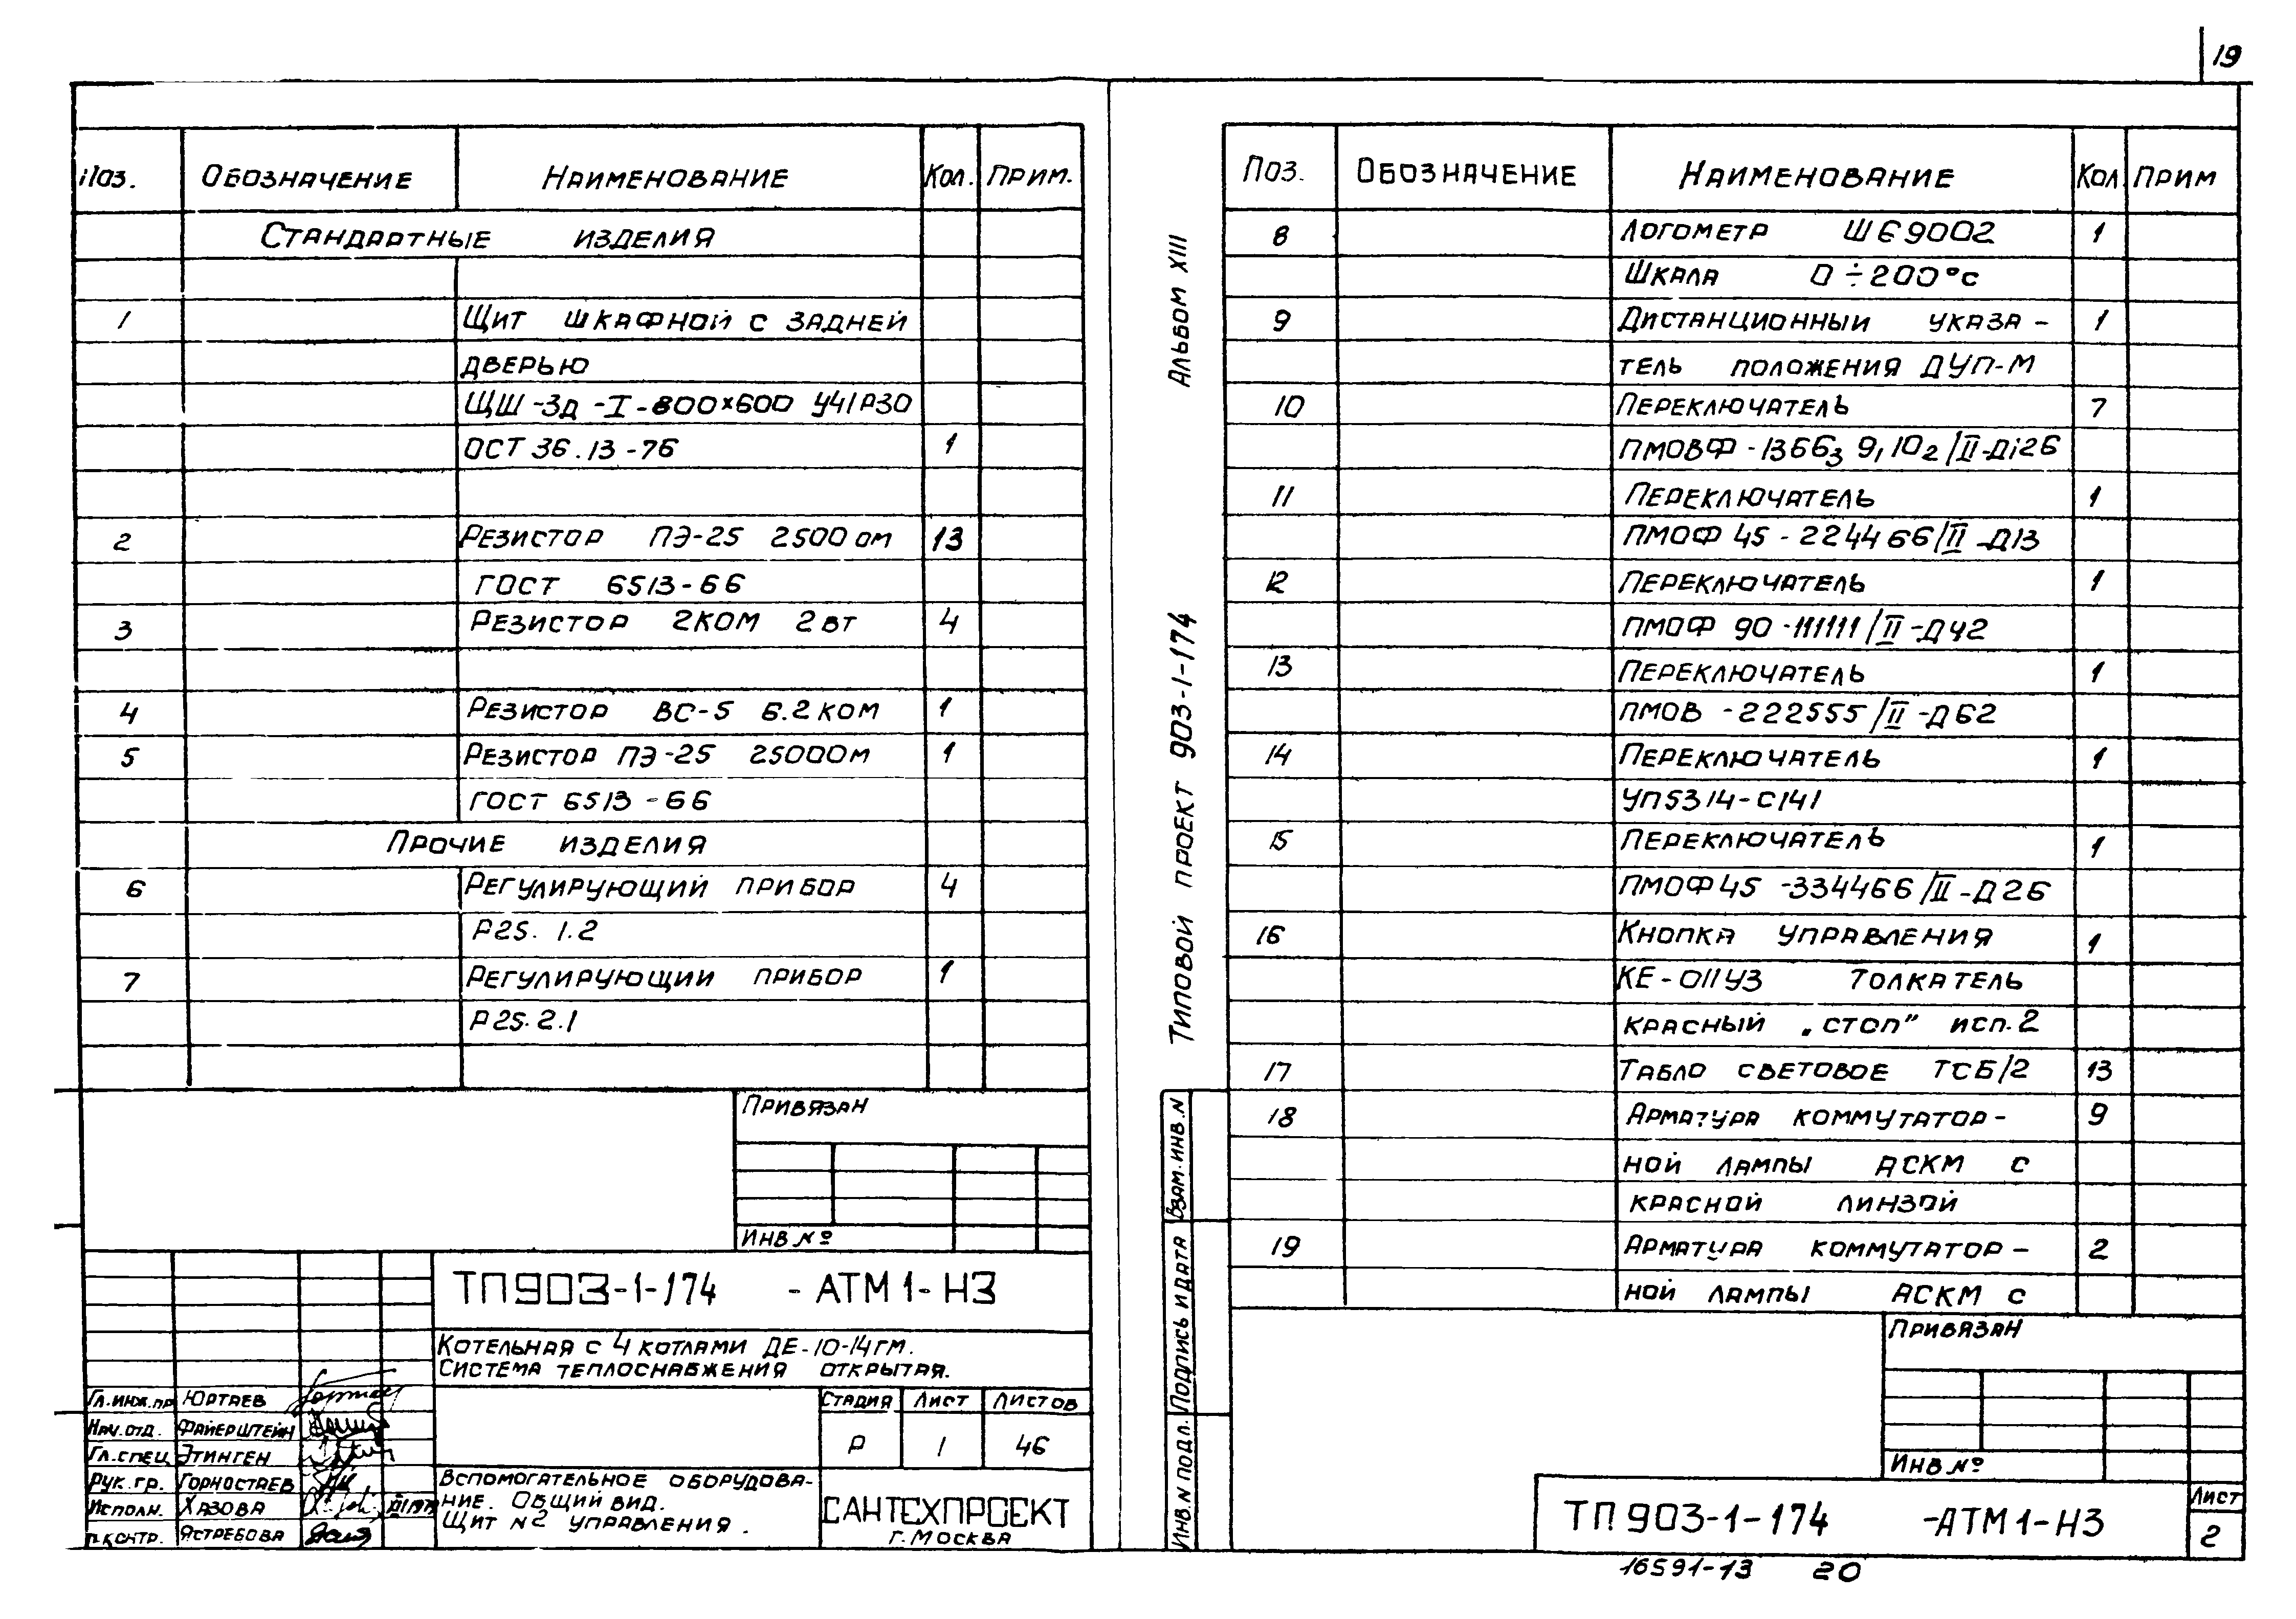 19
Поз. Обозначение Наименование Кол. Прим.
Стандартные изделия
1 Щит шкафной с задней
дверью
ЩШ-ЗД-I-800×600 У41Р30
ОСТ 36.13-76 1
2 Резистор ПЭ-25 2500 ом 13
ГОСТ 6513-66
3 Резистор 2ком 2вт 4
4 Резистор ВС-5 6.2 ком 1
5 Резистор ПЭ-25 2500ом 1
ГОСТ 6513-66
Прочие изделия
6 Регулирующий прибор 4
Р25.1.2
7 Регулирующий прибор 1
Р25.2.1
Привязан
Инв №
ТП 903-1-174 -АТМ1-Н3
Котельная с 4 котлами ДЕ-10-14гм.
Система теплоснабжения открытая.
Гл.инж.пр Юртаев
Нач.отд. Файерштейн
Гл.спец. Этинген
Рук.гр. Горностаев
Исполн. Хазова
Н.контр. Ястребова
Стадия Лист Листов
Р 1 46
Вспомогательное оборудова-
ние. Общий вид.
Щит №2 управления.
САНТЕХПРОЕКТ
г. Москва
Альбом XIII
Типовой проект 903-1-174
Взам.инв.N
Подпись и дата
Инв.N подл.
Поз. Обозначение Наименование Кол Прим
8 Логометр Ш69002 1
Шкала 0÷200°с
9 Дистанционный указа- 1
тель положения ДУП-М
10 Переключатель 7
ПМОВФ-1366₃ 9,10₂/II-Д126
11 Переключатель 1
ПМОФ 45-224466/II-Д13
12 Переключатель 1
ПМОФ 90-111111/II-Д42
13 Переключатель 1
ПМОВ-222555/II-Д62
14 Переключатель 1
УП5314-С141
15 Переключатель 1
ПМОФ45-334466/II-Д26
16 Кнопка управления 1
КЕ-011У3 толкатель
красный „стоп" исп.2
17 Табло световое ТСБ/2 13
18 Арматура коммутатор- 9
ной лампы АСКМ с
красной линзой
19 Арматура коммутатор- 2
ной лампы АСКМ с
Привязан
Инв №
ТП 903-1-174 -АТМ1-Н3
Лист
2
16591-13 20